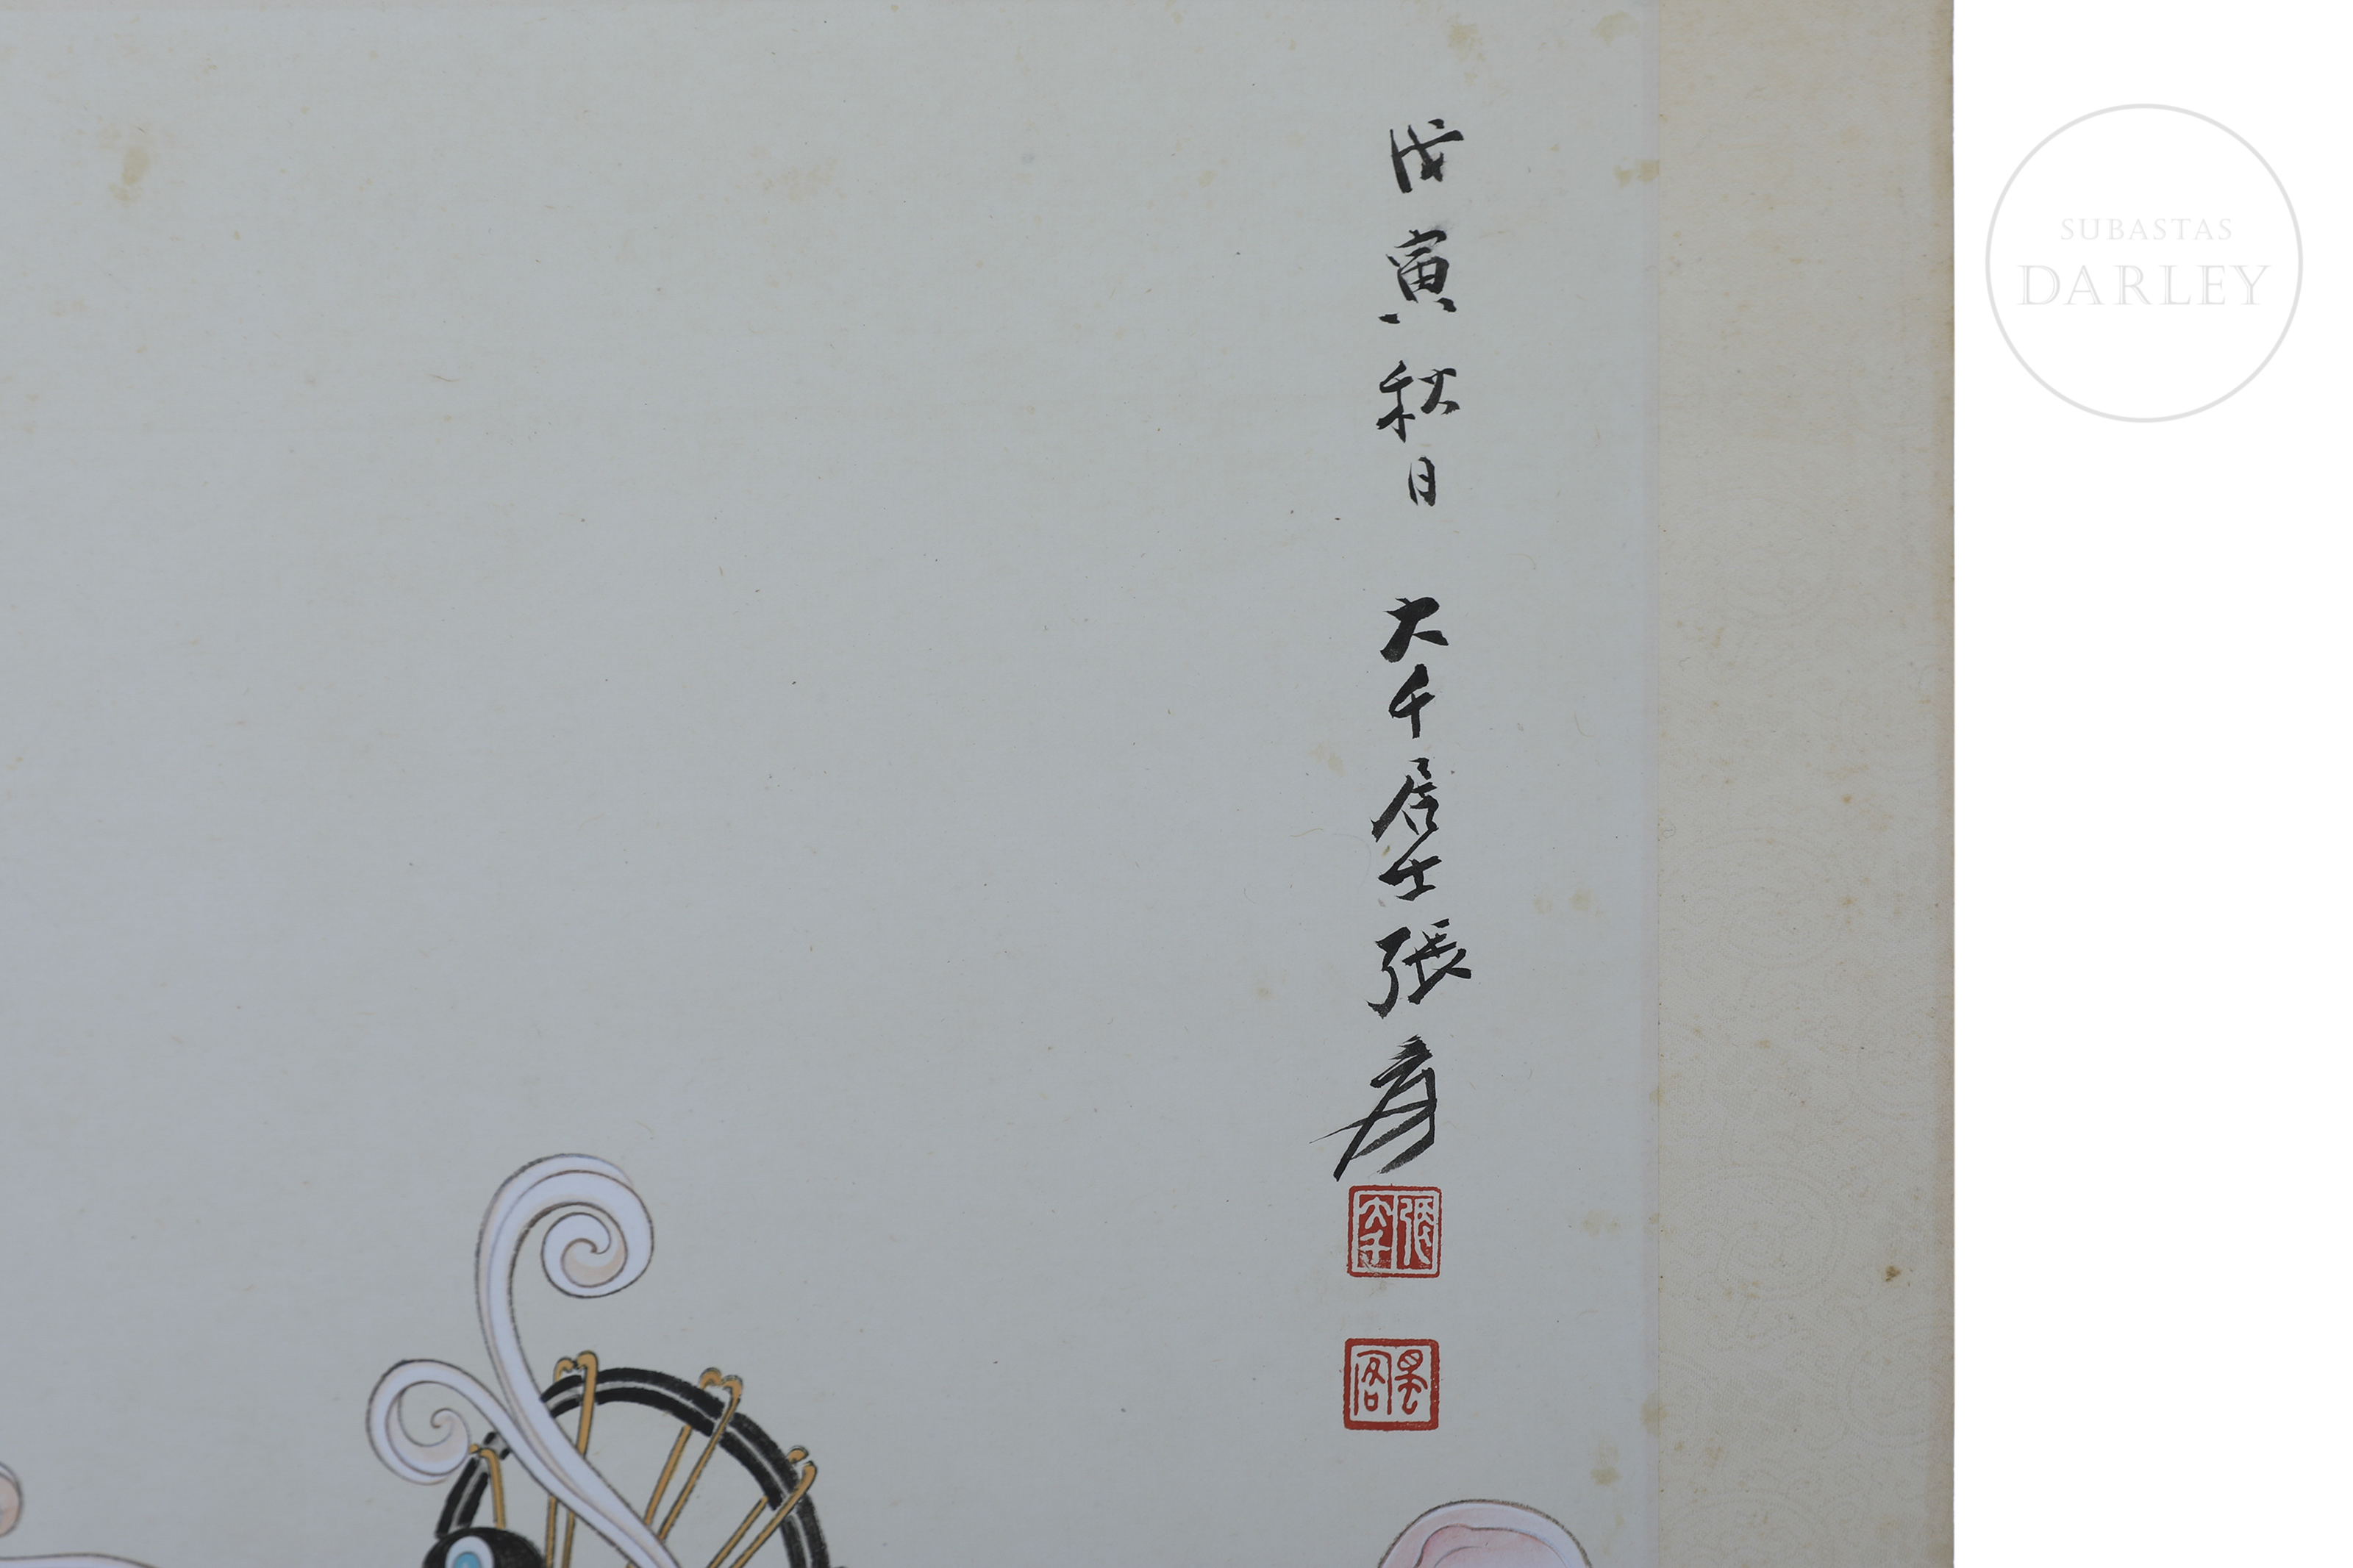 戊寅秋日 大千居士張爰
張大千
墨客
SUBASTAS
DARLEY